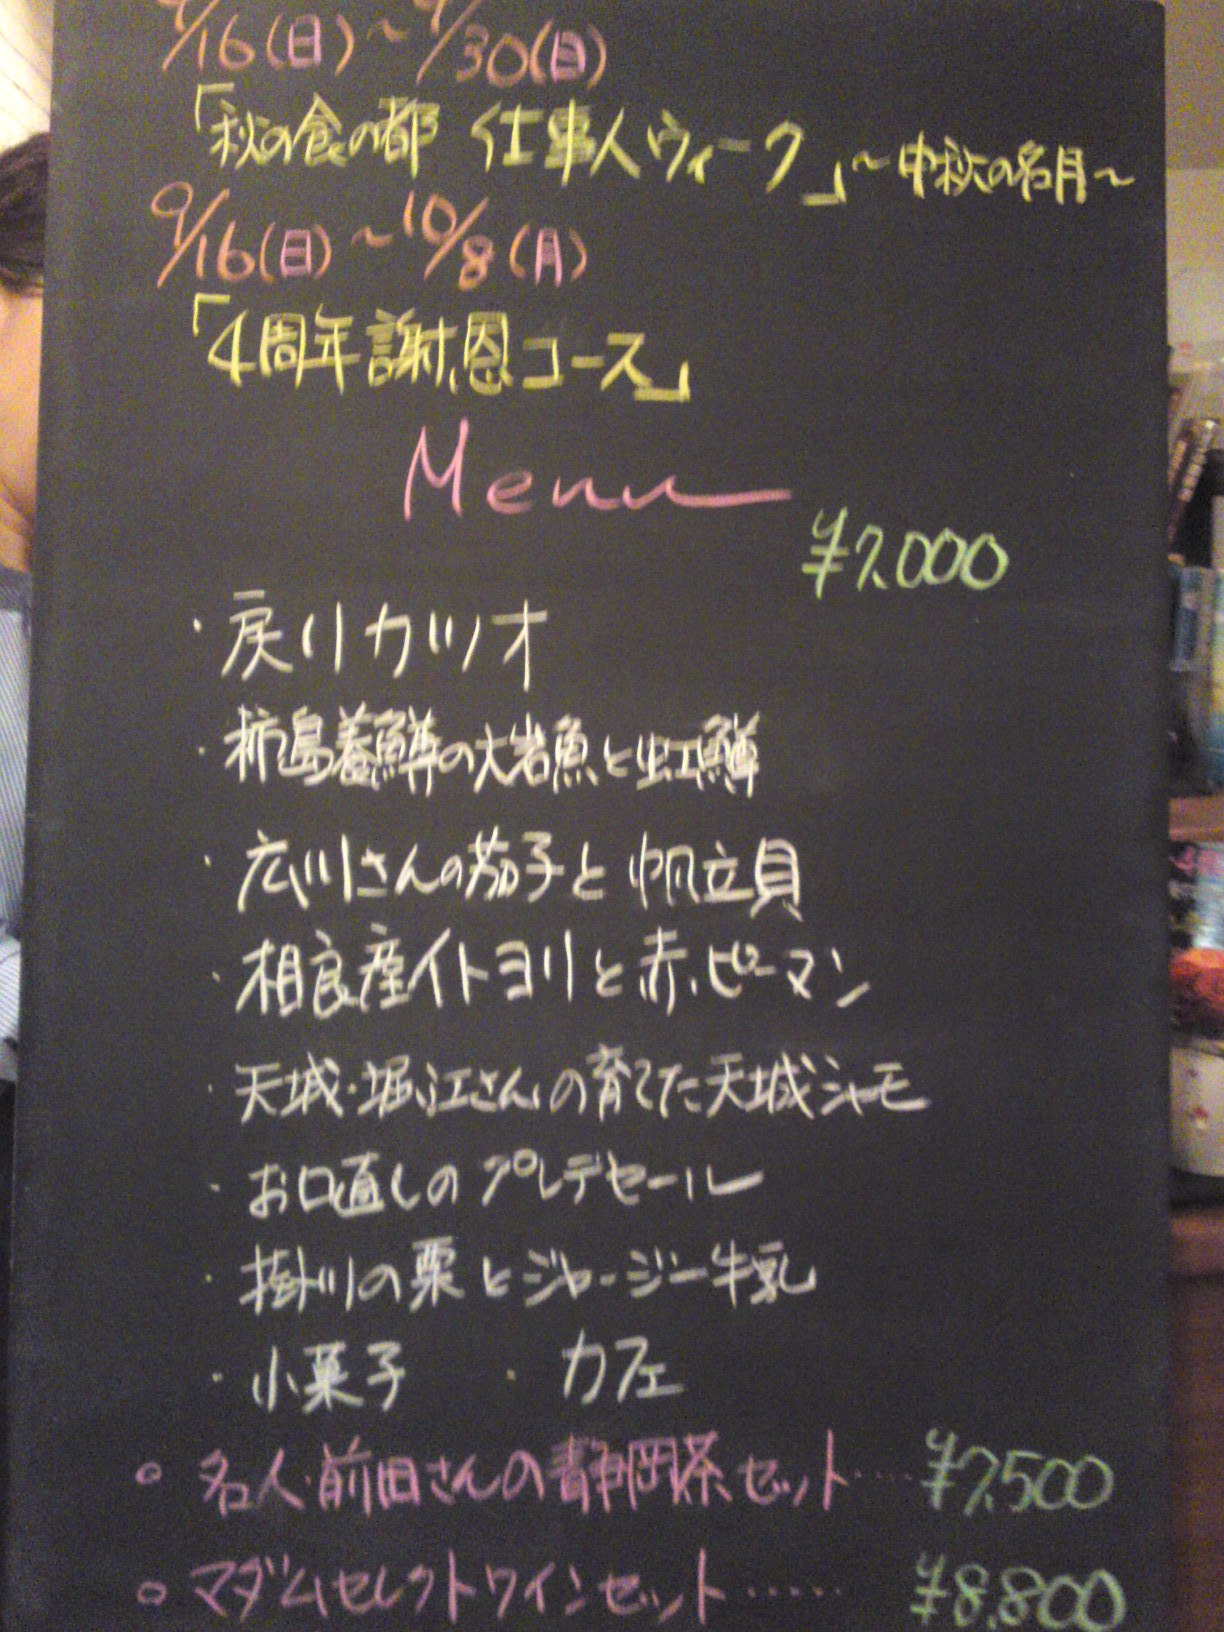 9/16(日)~9/30(日)
「秋の食の都 仕事人ウィーク」~中秋の名月~
9/16(日)~10/8(月)
「4周年謝恩コース」
Menu
¥7,000
・戻りカツオ
・柿島養鱒の大岩魚と虹鱒
・広川さんの茄子と帆立貝
・相良産イトヨリと赤ピーマン
・天城・堀江さんの育てた天城シャモ
・お口直しのプレデセール
・掛川の栗とジャージー牛乳
・小菓子 ・カフェ
○名人・前田さんの静岡茶セット…… ¥7,500
○マダムセレクトワインセット…… ¥8,800